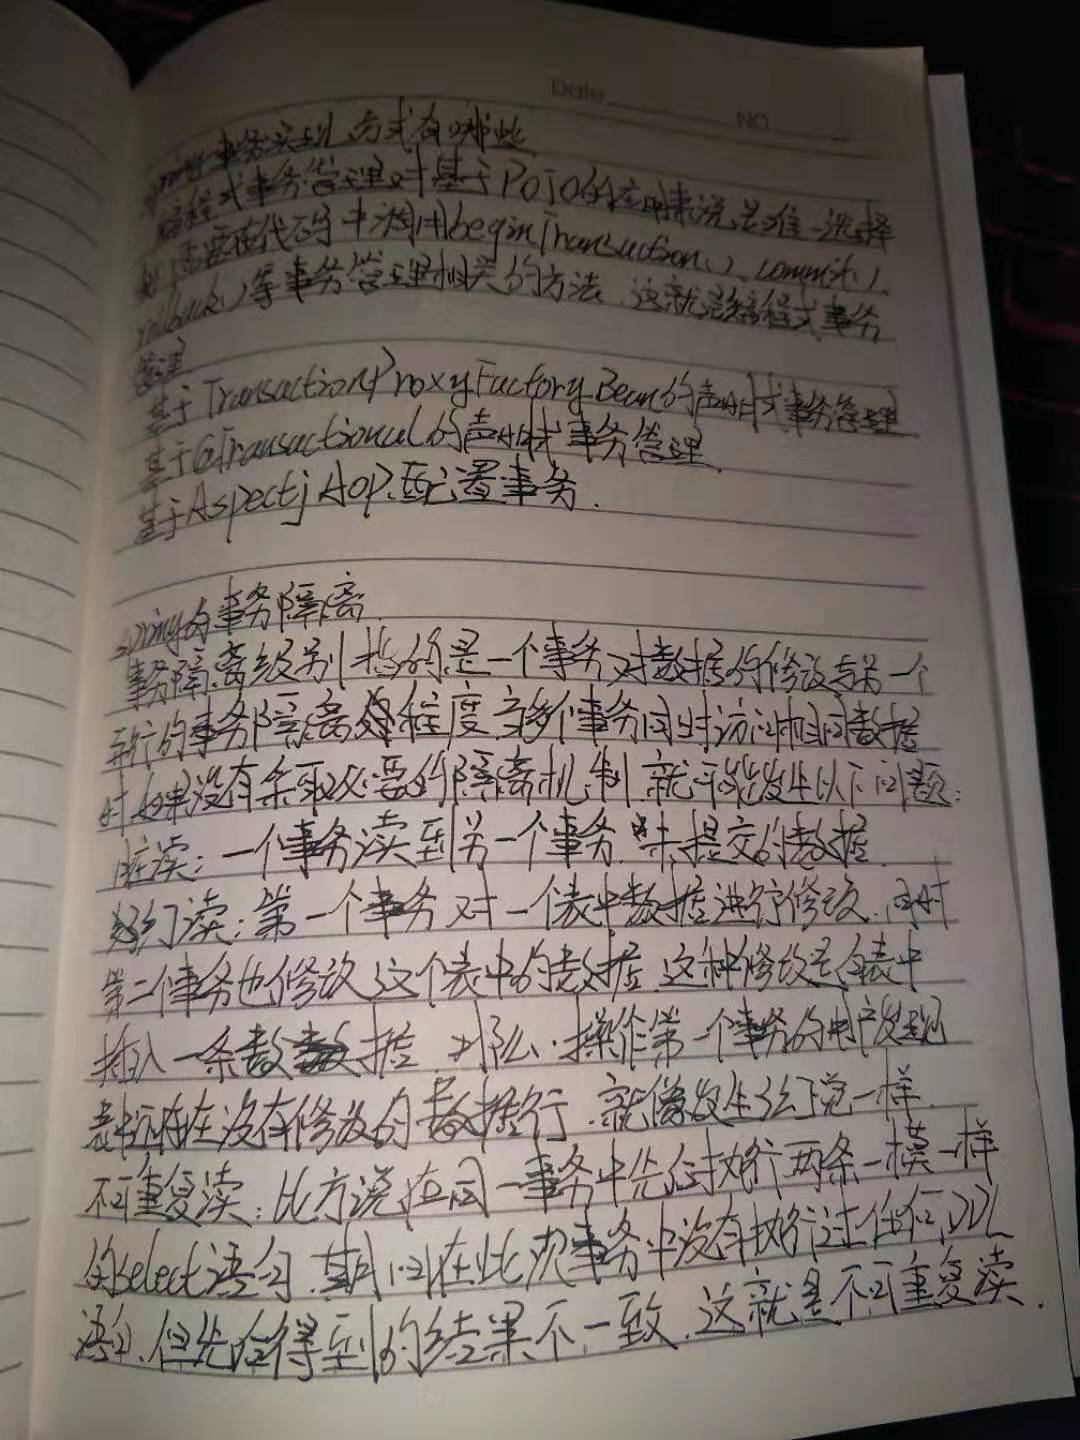 Date NO
Spring事务实现方式有哪些
编程式事务管理对基于POJO的应用来说是唯一选择
我们需要在代码中调用beginTransaction()、commit()、
rollback()等事务管理相关的方法,这就是编程式事务
管理
基于TransactionProxyFactoryBean的声明式事务管理
基于@Transactional的声明式事务管理
基于Aspectj Aop配置事务.
Spring的事务隔离
事务隔离级别指的是一个事务对数据的修改与另一个
并行的事务隔离的程度,当多个事务同时访问相同数据
时,如果没有采取必要的隔离机制,就可能发生以下问题:
脏读:一个事务读到另一个事务未提交的数据.
幻读:第一个事务对一个表中数据进行修改,同时
第二个事务也修改这个表中的数据.这种修改是向表中
插入一条数据.那么,操作第一个事务的用户发现
表中还存在没有修改的数据行,就像发生幻觉一样.
不可重复读:比方说在同一事务中先后执行两条一模一样
的select语句,期间在此次事务中没有执行过任何DDL
语句,但先后得到的结果不一致,这就是不可重复读.